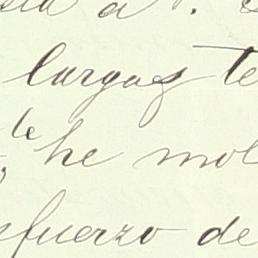 a.
largas te
le
he mol
sfuerzo de